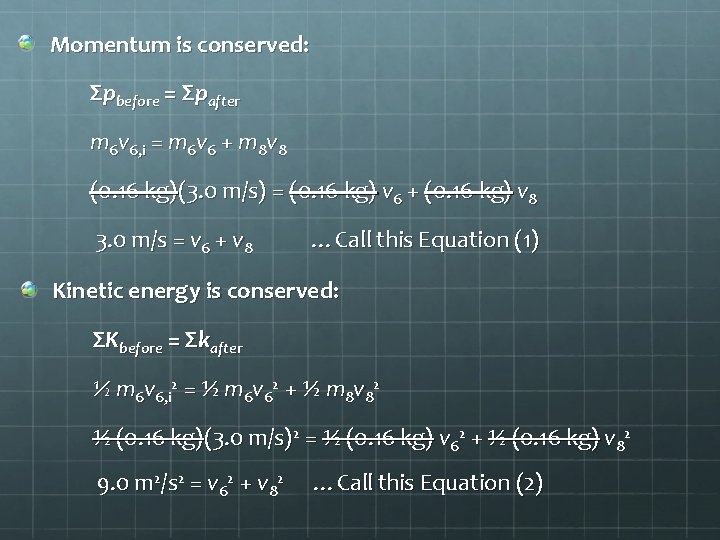 Momentum is conserved:
Σp_before = Σp_after
m₆v₆,ᵢ = m₆v₆ + m₈v₈
(0.16 kg)(3.0 m/s) = (0.16 kg) v₆ + (0.16 kg) v₈
3.0 m/s = v₆ + v₈ …Call this Equation (1)
Kinetic energy is conserved:
ΣK_before = Σk_after
½ m₆v₆,ᵢ² = ½ m₆v₆² + ½ m₈v₈²
½ (0.16 kg)(3.0 m/s)² = ½ (0.16 kg) v₆² + ½ (0.16 kg) v₈²
9.0 m²/s² = v₆² + v₈² …Call this Equation (2)